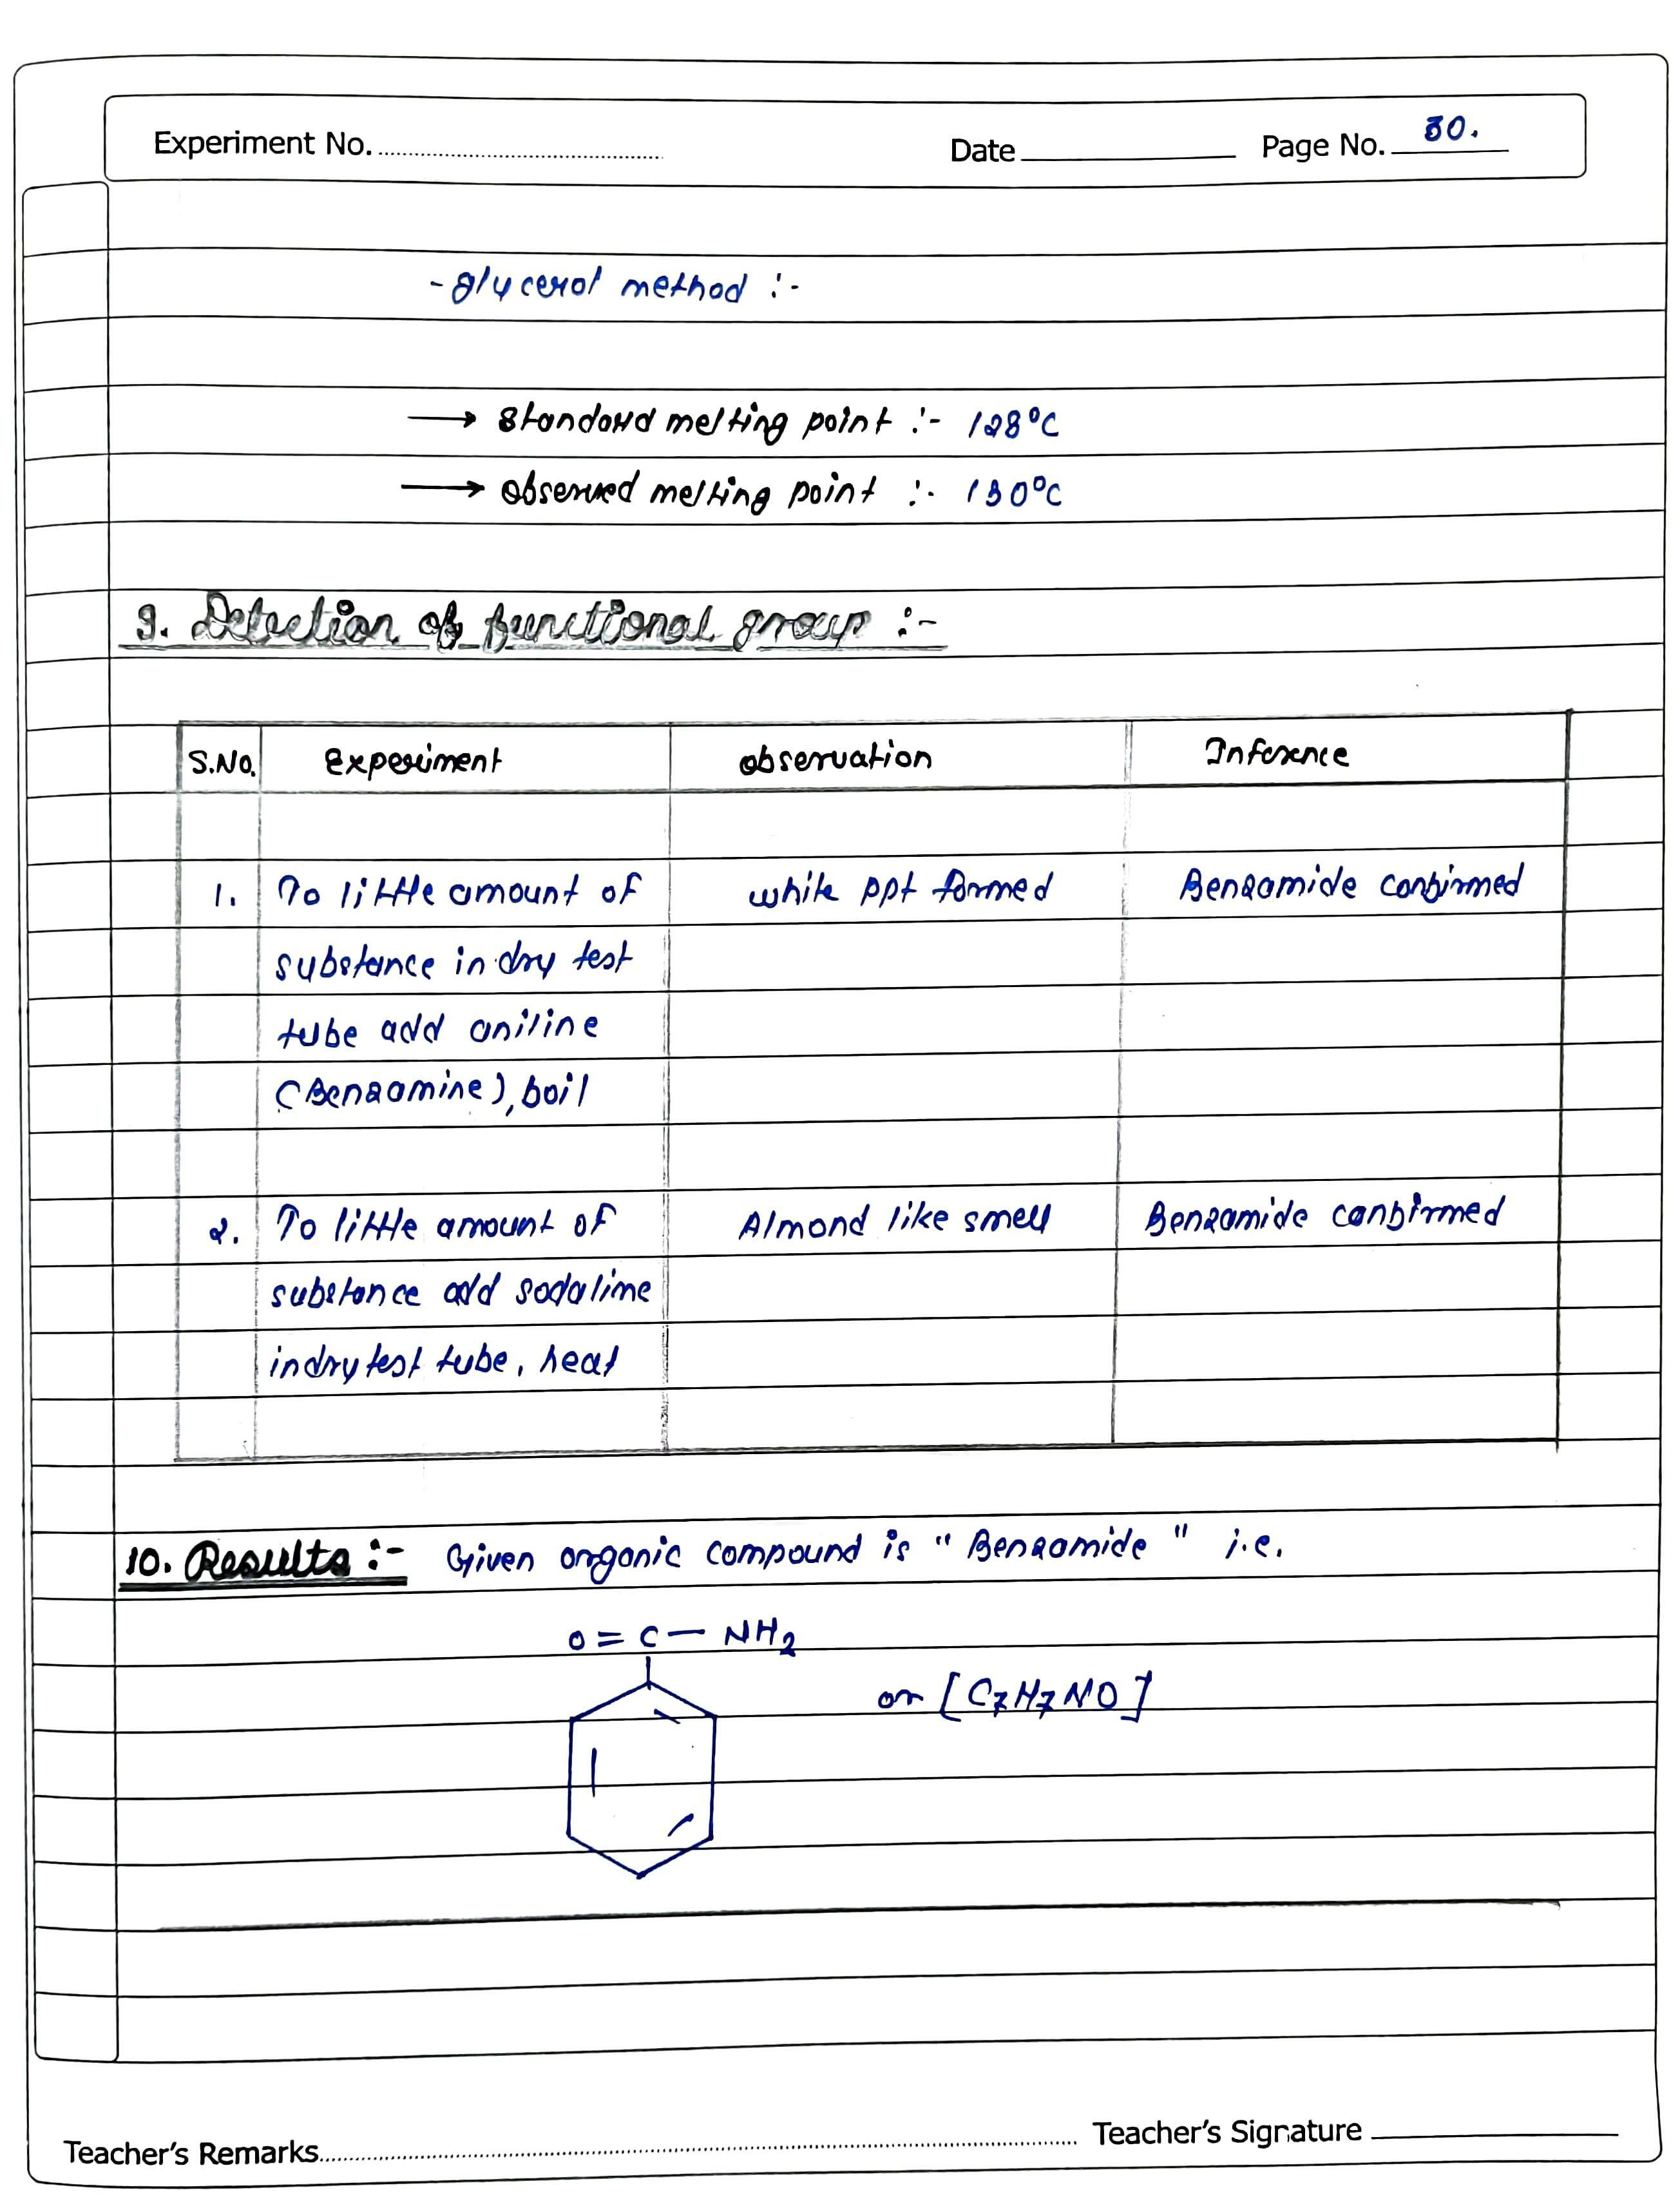 Experiment No. Date Page No. 30.
- glycerol method :-
→ Standard melting point :- 128°C
→ observed melting point :- 130°C
9. Detection of functional group :-
S.No. Experiment observation Inference
1. To little amount of white ppt formed Benzamide confirmed
substance in dry test
tube add aniline
(Benzamine), boil
2. To little amount of Almond like smell Benzamide confirmed
substance add sodalime
in dry test tube, heat
10. Results :- Given organic compound is "Benzamide" i.e.
O = C — NH₂
or [C₇H₇NO]
Teacher's Remarks Teacher's Signature